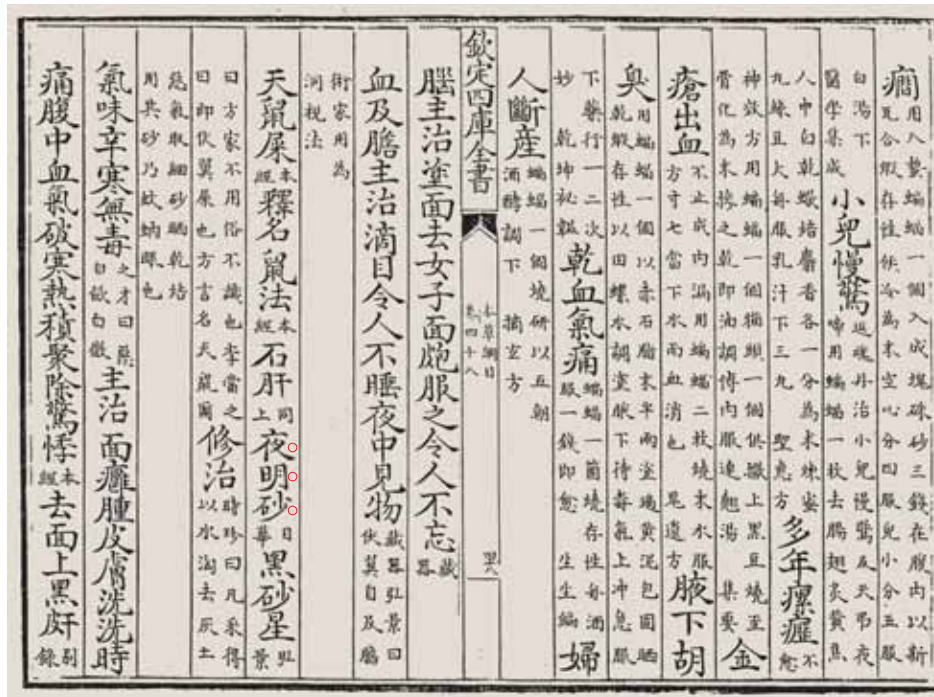 癇用入蟄蝙蝠一個入成塊硃砂三錢在腹内以新瓦合煆存性候冷為末空心分四服兒小分五服
白湯下醫學集成小兒慢驚返魂丹治小兒慢驚及天弔夜啼用蝙蝠一枚去腸翅炙黃焦
人中白乾蠍焙麝香各一分為末煉蜜丸綠豆大每服乳汁下三丸聖惠方多年瘰癧不愈
神效方用蝙蝠一個猫頭一個俱撒上黑豆燒至骨化為末摻之乾即油調傅内服連翹湯集要金
瘡出血不止成内漏用蝙蝠二枚燒末水服方寸七當下水而血消也鬼遺方腋下胡
臭用蝙蝠一個以赤石脂末半兩塗遍黃泥包固晒乾煆存性以田螺水調塗腋下待毒氣上冲急服
下藥行一二次妙乾坤祕韞乾血氣痛蝙蝠一箇燒存性每酒服一錢即愈生生編婦
人斷産蝙蝠一個燒研以五朝酒醅調下摘玄方
欽定四庫全書 本草綱目 卷四十八
腦主治塗面去女子面皰服之令人不忘藏器
血及膽主治滴目令人不睡夜中見物藏器弘景曰伏翼目及膽
術家用為洞視法
天鼠屎本經釋名鼠法本經石肝同上夜明砂日華黑砂星弘景
曰方家不用俗不識也李當之曰即伏翼屎也方言名天鼠爾修治時珍曰凡采得以水淘去灰土
惡氣取細砂晒乾焙用其砂乃蚊蚋眼也
氣味辛寒無毒之才曰惡白斂白微主治面癰腫皮膚洗洗時
痛腹中血氣破寒熱積聚除驚悸本經去面上黑䵟别錄